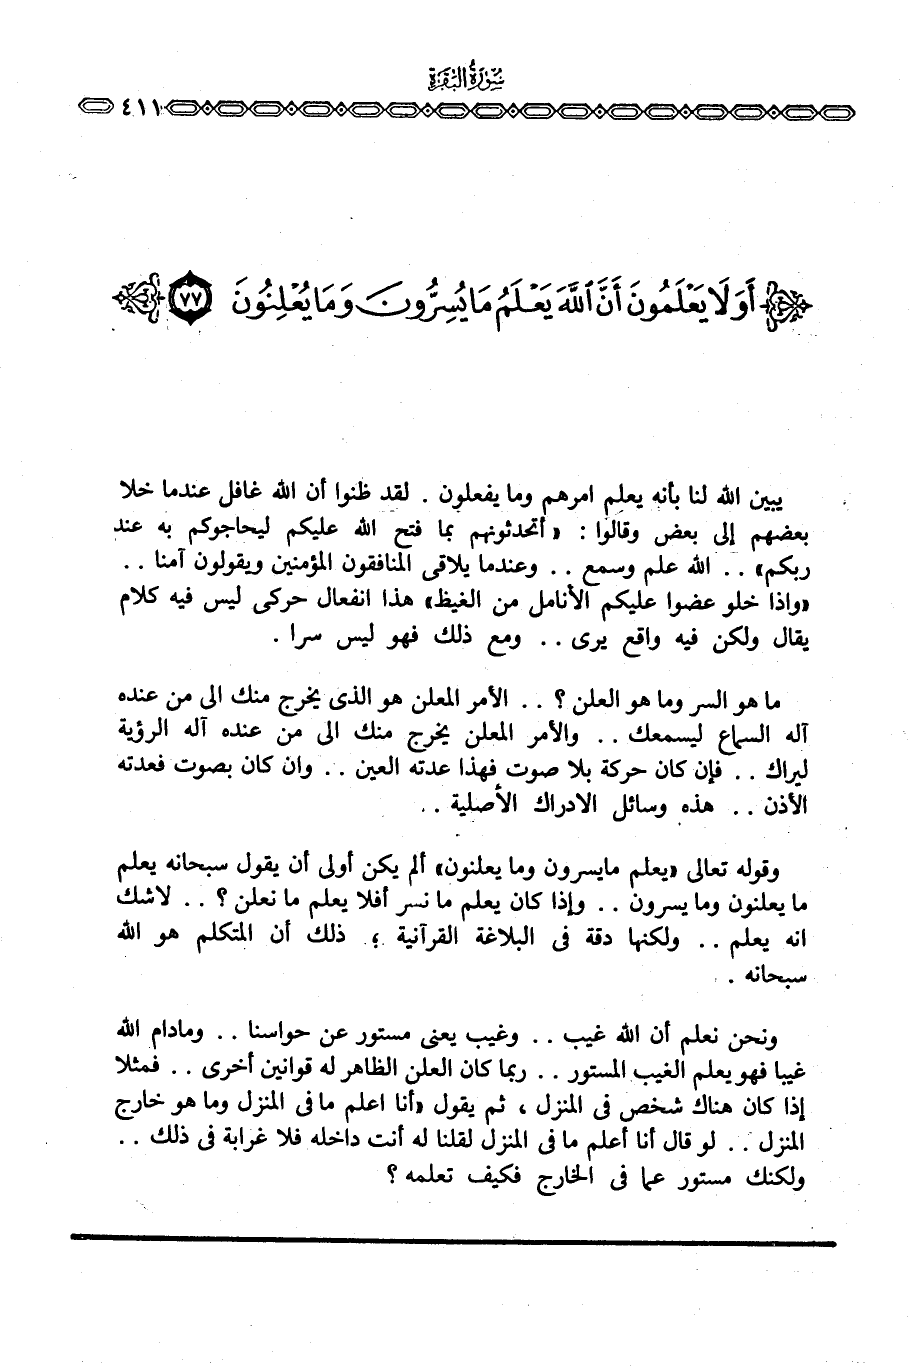 سُورَةُ البَقَرَةِ
٤١١
أَوَلَا يَعْلَمُونَ أَنَّ ٱللَّهَ يَعْلَمُ مَا يُسِرُّونَ وَمَا يُعْلِنُونَ ٧٧
يبين الله لنا بأنه يعلم امرهم وما يفعلون . لقد ظنوا أن الله غافل عندما خلا
بعضهم إلى بعض وقالوا : «أتحدثونهم بما فتح الله عليكم ليحاجوكم به عند
ربكم» . . الله علم وسمع . . وعندما يلاقى المنافقون المؤمنين ويقولون آمنا . .
«واذا خلو عضوا عليكم الأنامل من الغيظ» هذا انفعال حركى ليس فيه كلام
يقال ولكن فيه واقع يرى . . ومع ذلك فهو ليس سرا .
ما هو السر وما هو العلن ؟ . . الأمر المعلن هو الذى يخرج منك الى من عنده
آله السماع ليسمعك . . والأمر المعلن يخرج منك الى من عنده آله الرؤية
ليراك . . فإن كان حركة بلا صوت فهذا عدته العين . . وان كان بصوت فعدته
الأذن . . هذه وسائل الادراك الأصلية . .
وقوله تعالى «يعلم مايسرون وما يعلنون» ألم يكن أولى أن يقول سبحانه يعلم
ما يعلنون وما يسرون . . وإذا كان يعلم ما نسر أفلا يعلم ما نعلن ؟ . . لاشك
انه يعلم . . ولكنها دقة فى البلاغة القرآنية ؛ ذلك أن المتكلم هو الله
سبحانه .
ونحن نعلم أن الله غيب . . وغيب يعنى مستور عن حواسنا . . ومادام الله
غيبا فهو يعلم الغيب المستور . . ربما كان العلن الظاهر له قوانين أخرى . . فمثلا
إذا كان هناك شخص فى المنزل ، ثم يقول «أنا اعلم ما فى المنزل وما هو خارج
المنزل . . لو قال أنا أعلم ما فى المنزل لقلنا له أنت داخله فلا غرابة فى ذلك . .
ولكنك مستور عما فى الخارج فكيف تعلمه ؟